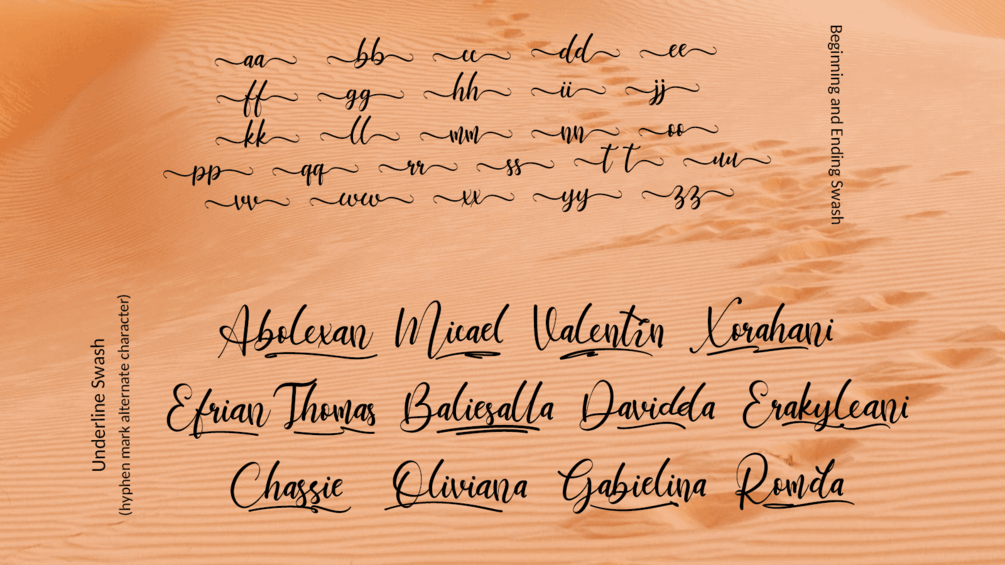 aa bb cc dd ee
ff gg hh ii jj
kk ll mm nn oo
pp qq rr ss tt uu
vv ww xx yy zz
Beginning and Ending Swash
Underline Swash
(hyphen mark alternate character)
Abolexan Micael Valentin Xorahani
Efrian Thomas Baliesalla Davidda Erakyleani
Chassie Oliviana Gabielina Romda